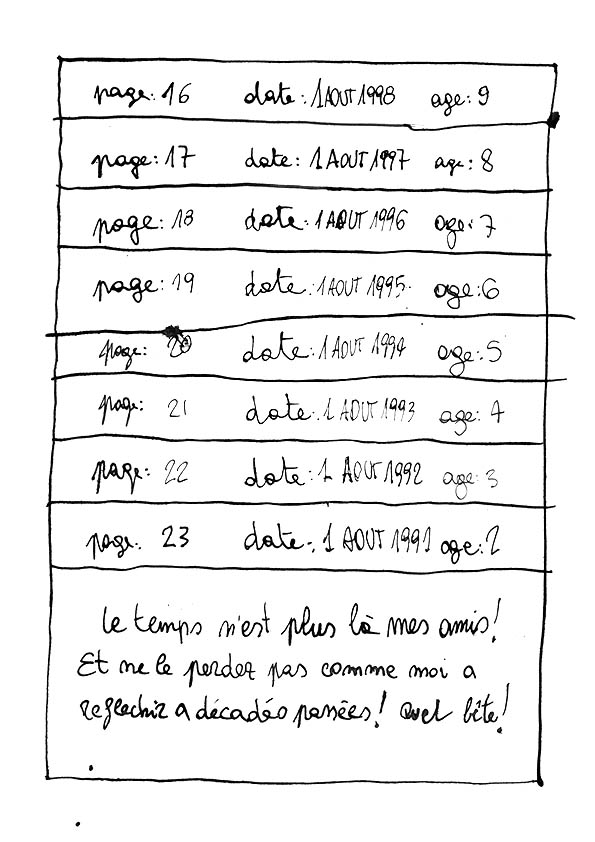 page: 16 date: 1 AOUT 1998 age: 9
page: 17 date: 1 AOUT 1997 age: 8
page: 18 date: 1 AOUT 1996 age: 7
page: 19 date: 1 AOUT 1995 age: 6
page: 20 date: 1 AOUT 1994 age: 5
page: 21 date: 1 AOUT 1993 age: 4
page: 22 date: 1 AOUT 1992 age: 3
page: 23 date: 1 AOUT 1991 age: 2
le temps n'est plus là mes amis!
Et ne le perdez pas comme moi a
reflechir a décadés passées! quel bête!